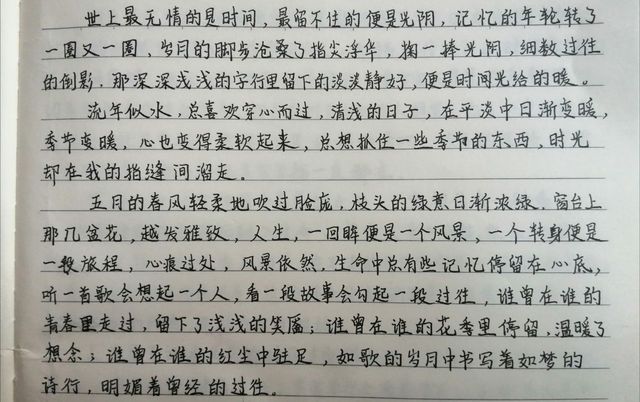 世上最无情的是时间，最留不住的便是光阴，记忆的年轮转了
一圈又一圈，岁月的脚步沧桑了指尖浮华，掬一捧光阴，细数过往
的倒影，那深深浅浅的字行里留下的淡淡静好，便是时间光给的暖。
流年似水，总喜欢穿心而过，清浅的日子，在平淡中日渐变暖，
季节变暖，心也变得柔软起来，总想抓住一些季节的东西，时光
却在我的指缝间溜走。
五月的春风轻柔地吹过脸庞，枝头的绿意日渐浓绿，窗台上
那几盆花，越发雅致，人生，一回眸便是一个风景，一个转身便是
一段旅程，心痕过处，风景依然，生命中总有些记忆停留在心底，
听一首歌会想起一个人，看一段故事会勾起一段过往，谁曾在谁的
青春里走过，留下了浅浅的笑靥；谁曾在谁的花季里停留，温暖了
想念；谁曾在谁的红尘中驻足，如歌的岁月中书写着如梦的
诗行，明媚着曾经的过往。